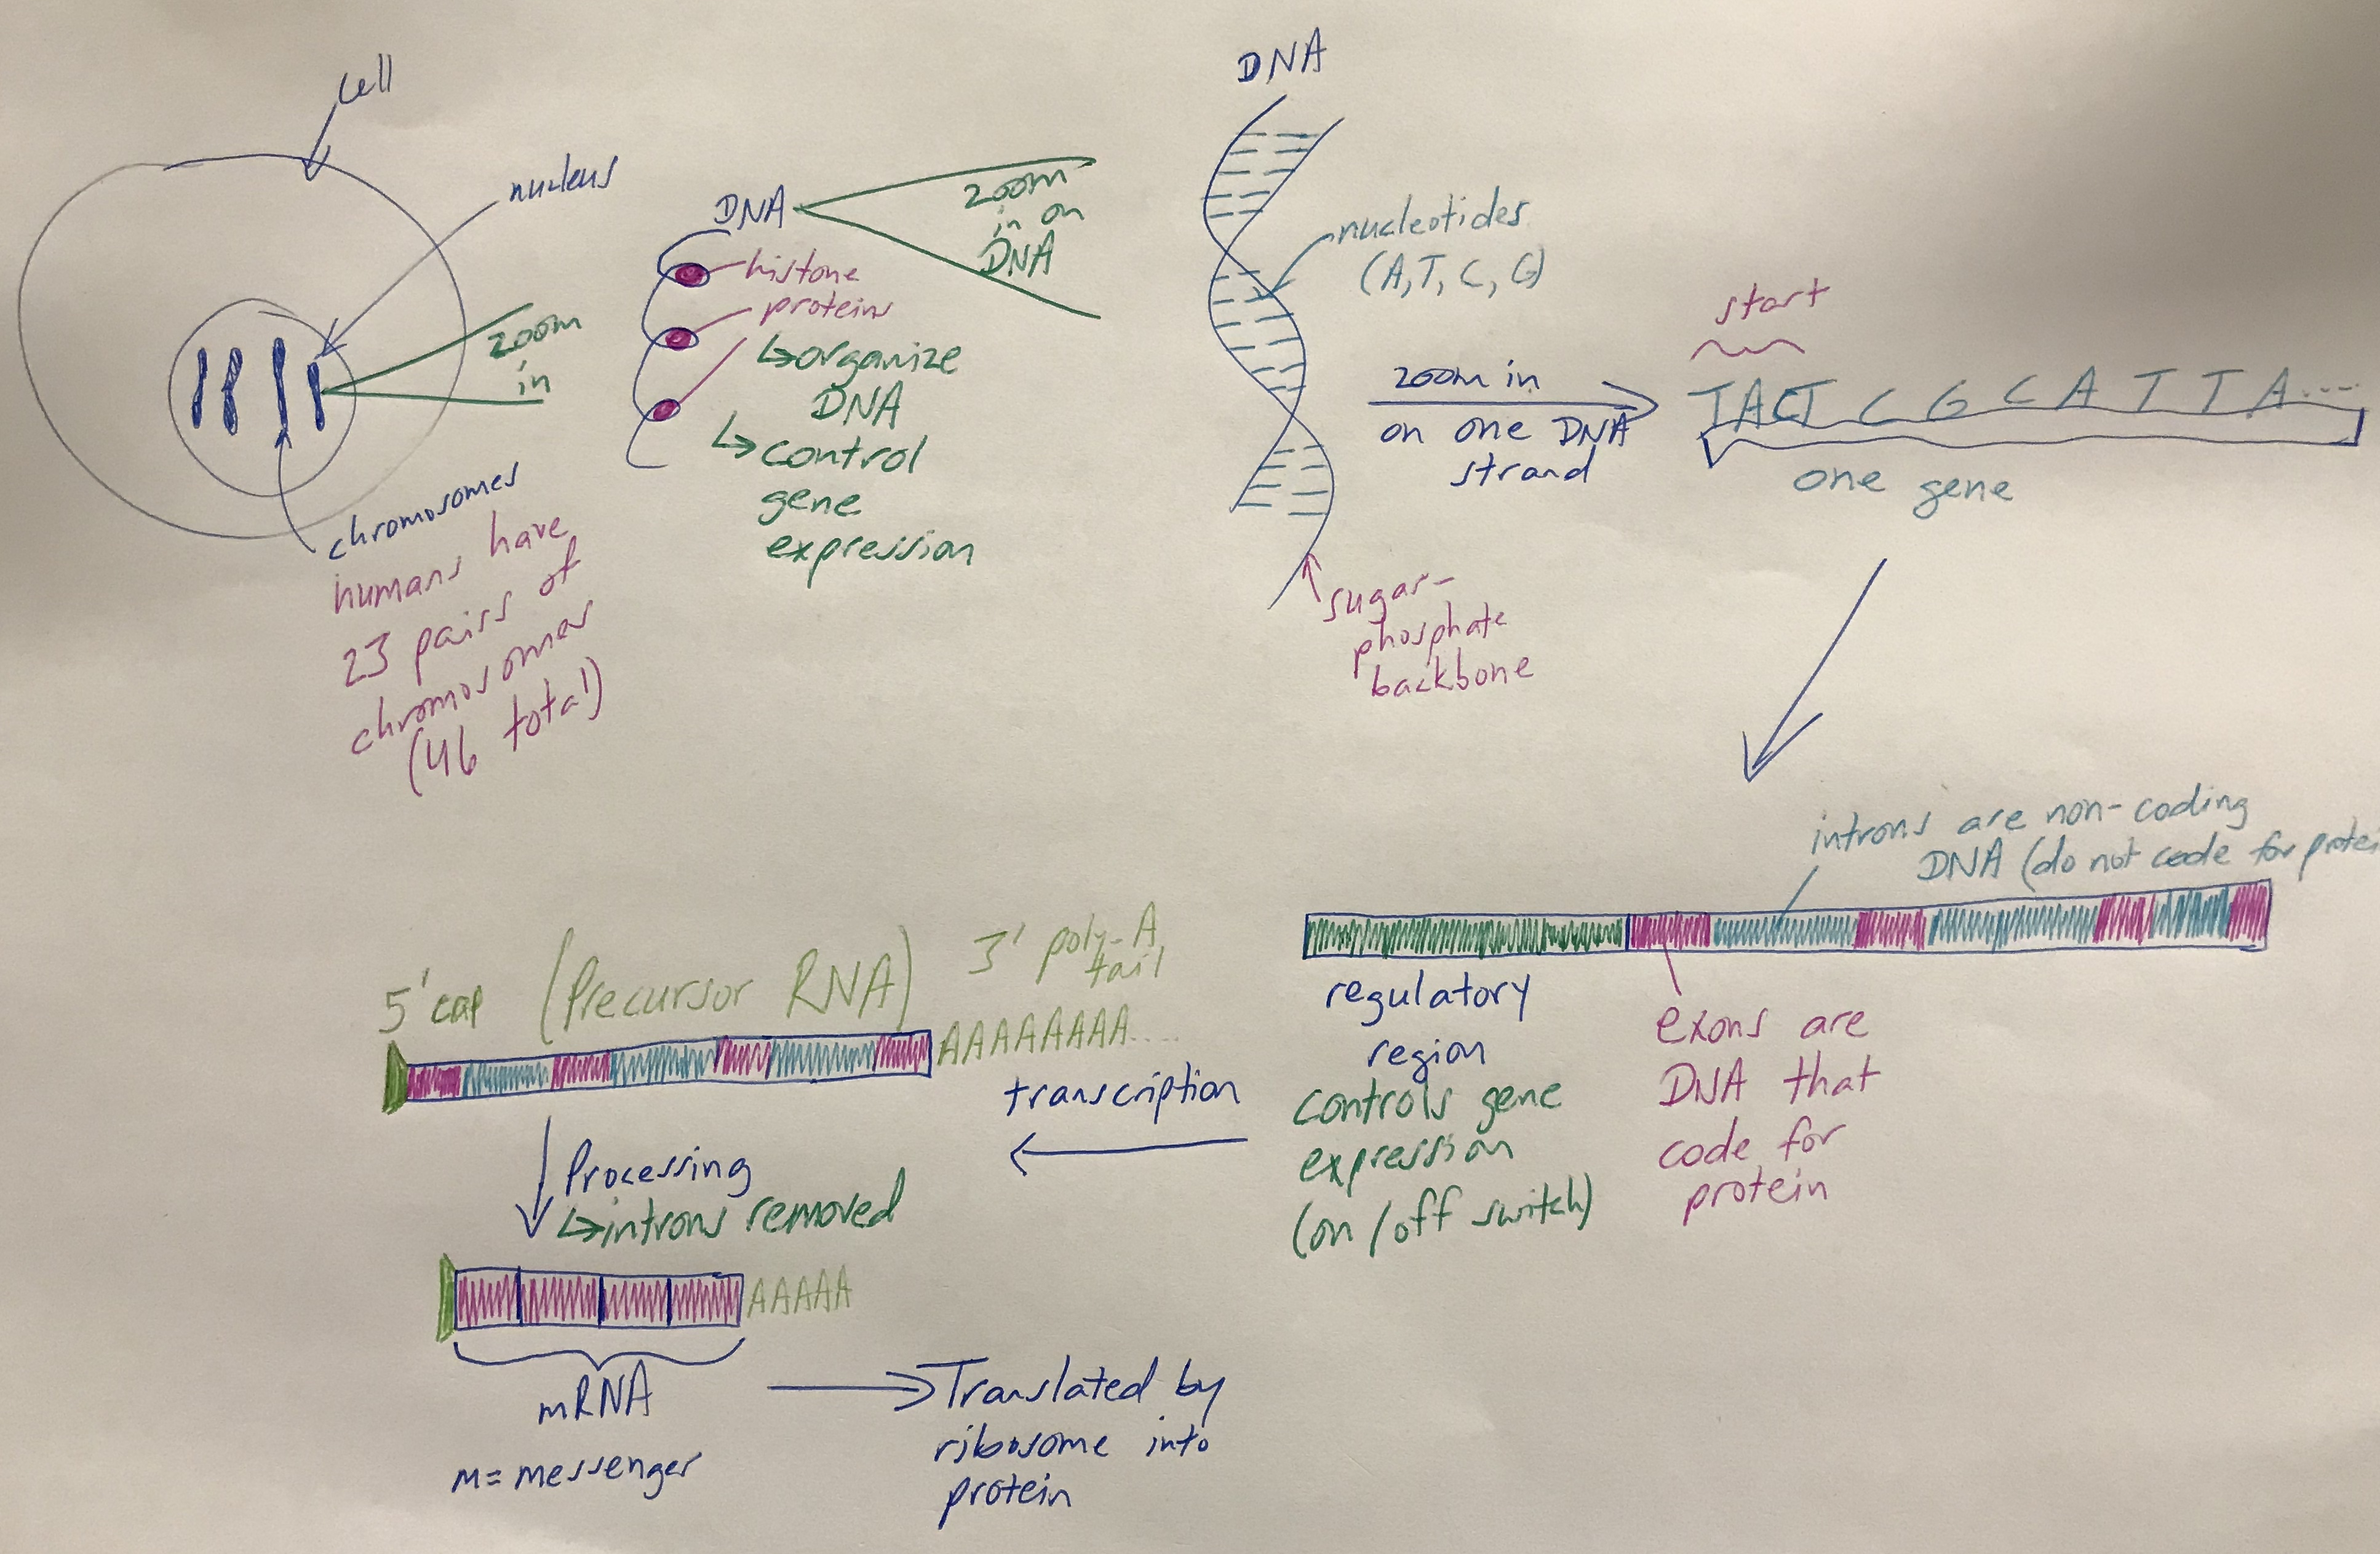 cell
nucleus
zoom
in
chromosomes
humans have
23 pairs of
chromosomes
(46 total)
DNA
histone
proteins
↳organize
DNA
↳control
gene
expression
zoom
in on
DNA
DNA
nucleotides
(A, T, C, G)
sugar-
phosphate
backbone
zoom in
on one DNA
strand
start
T C G C A T T A....
one gene
introns are non-coding
DNA (do not code for protei
regulatory
region
controls gene
expression
(on/off switch)
exons are
DNA that
code for
protein
transcription
5' cap
(Precursor RNA)
3' poly-A
tail
AAAAAAAA....
Processing
↳introns removed
AAAAA
mRNA
m=messenger
Translated by
ribosome into
protein